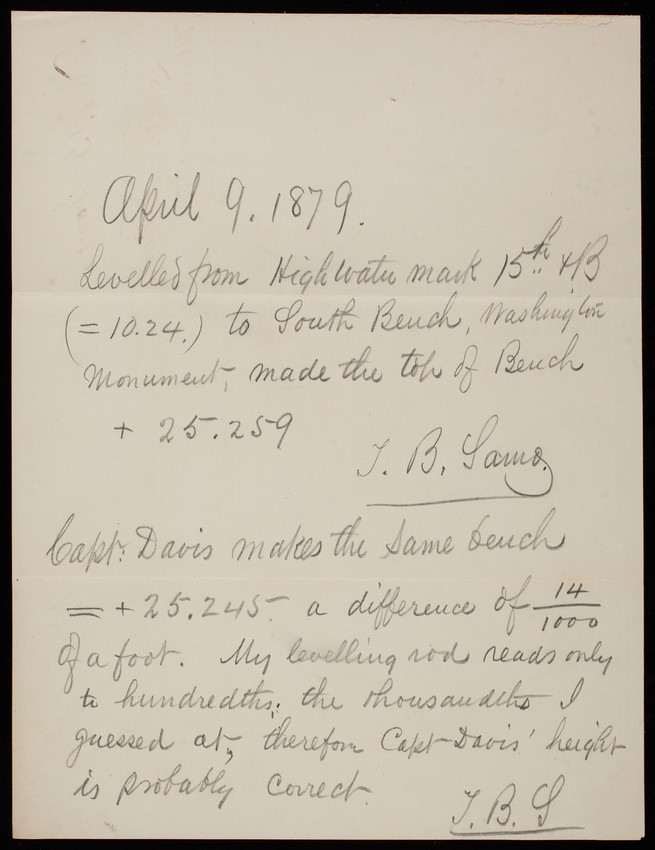 April 9. 1879.
Levelled from High Water mark 15th & B
(= 10.24.) to South Bench, Washington
Monument, made the top of Bench
+ 25.259
T. B. Samo.
Capt. Davis makes the same bench
= + 25.245. a difference of 14/1000
of a foot. My levelling rod reads only
to hundredths; the thousandths I
guessed at, therefore Capt Davis' height
is probably correct.
T. B. S